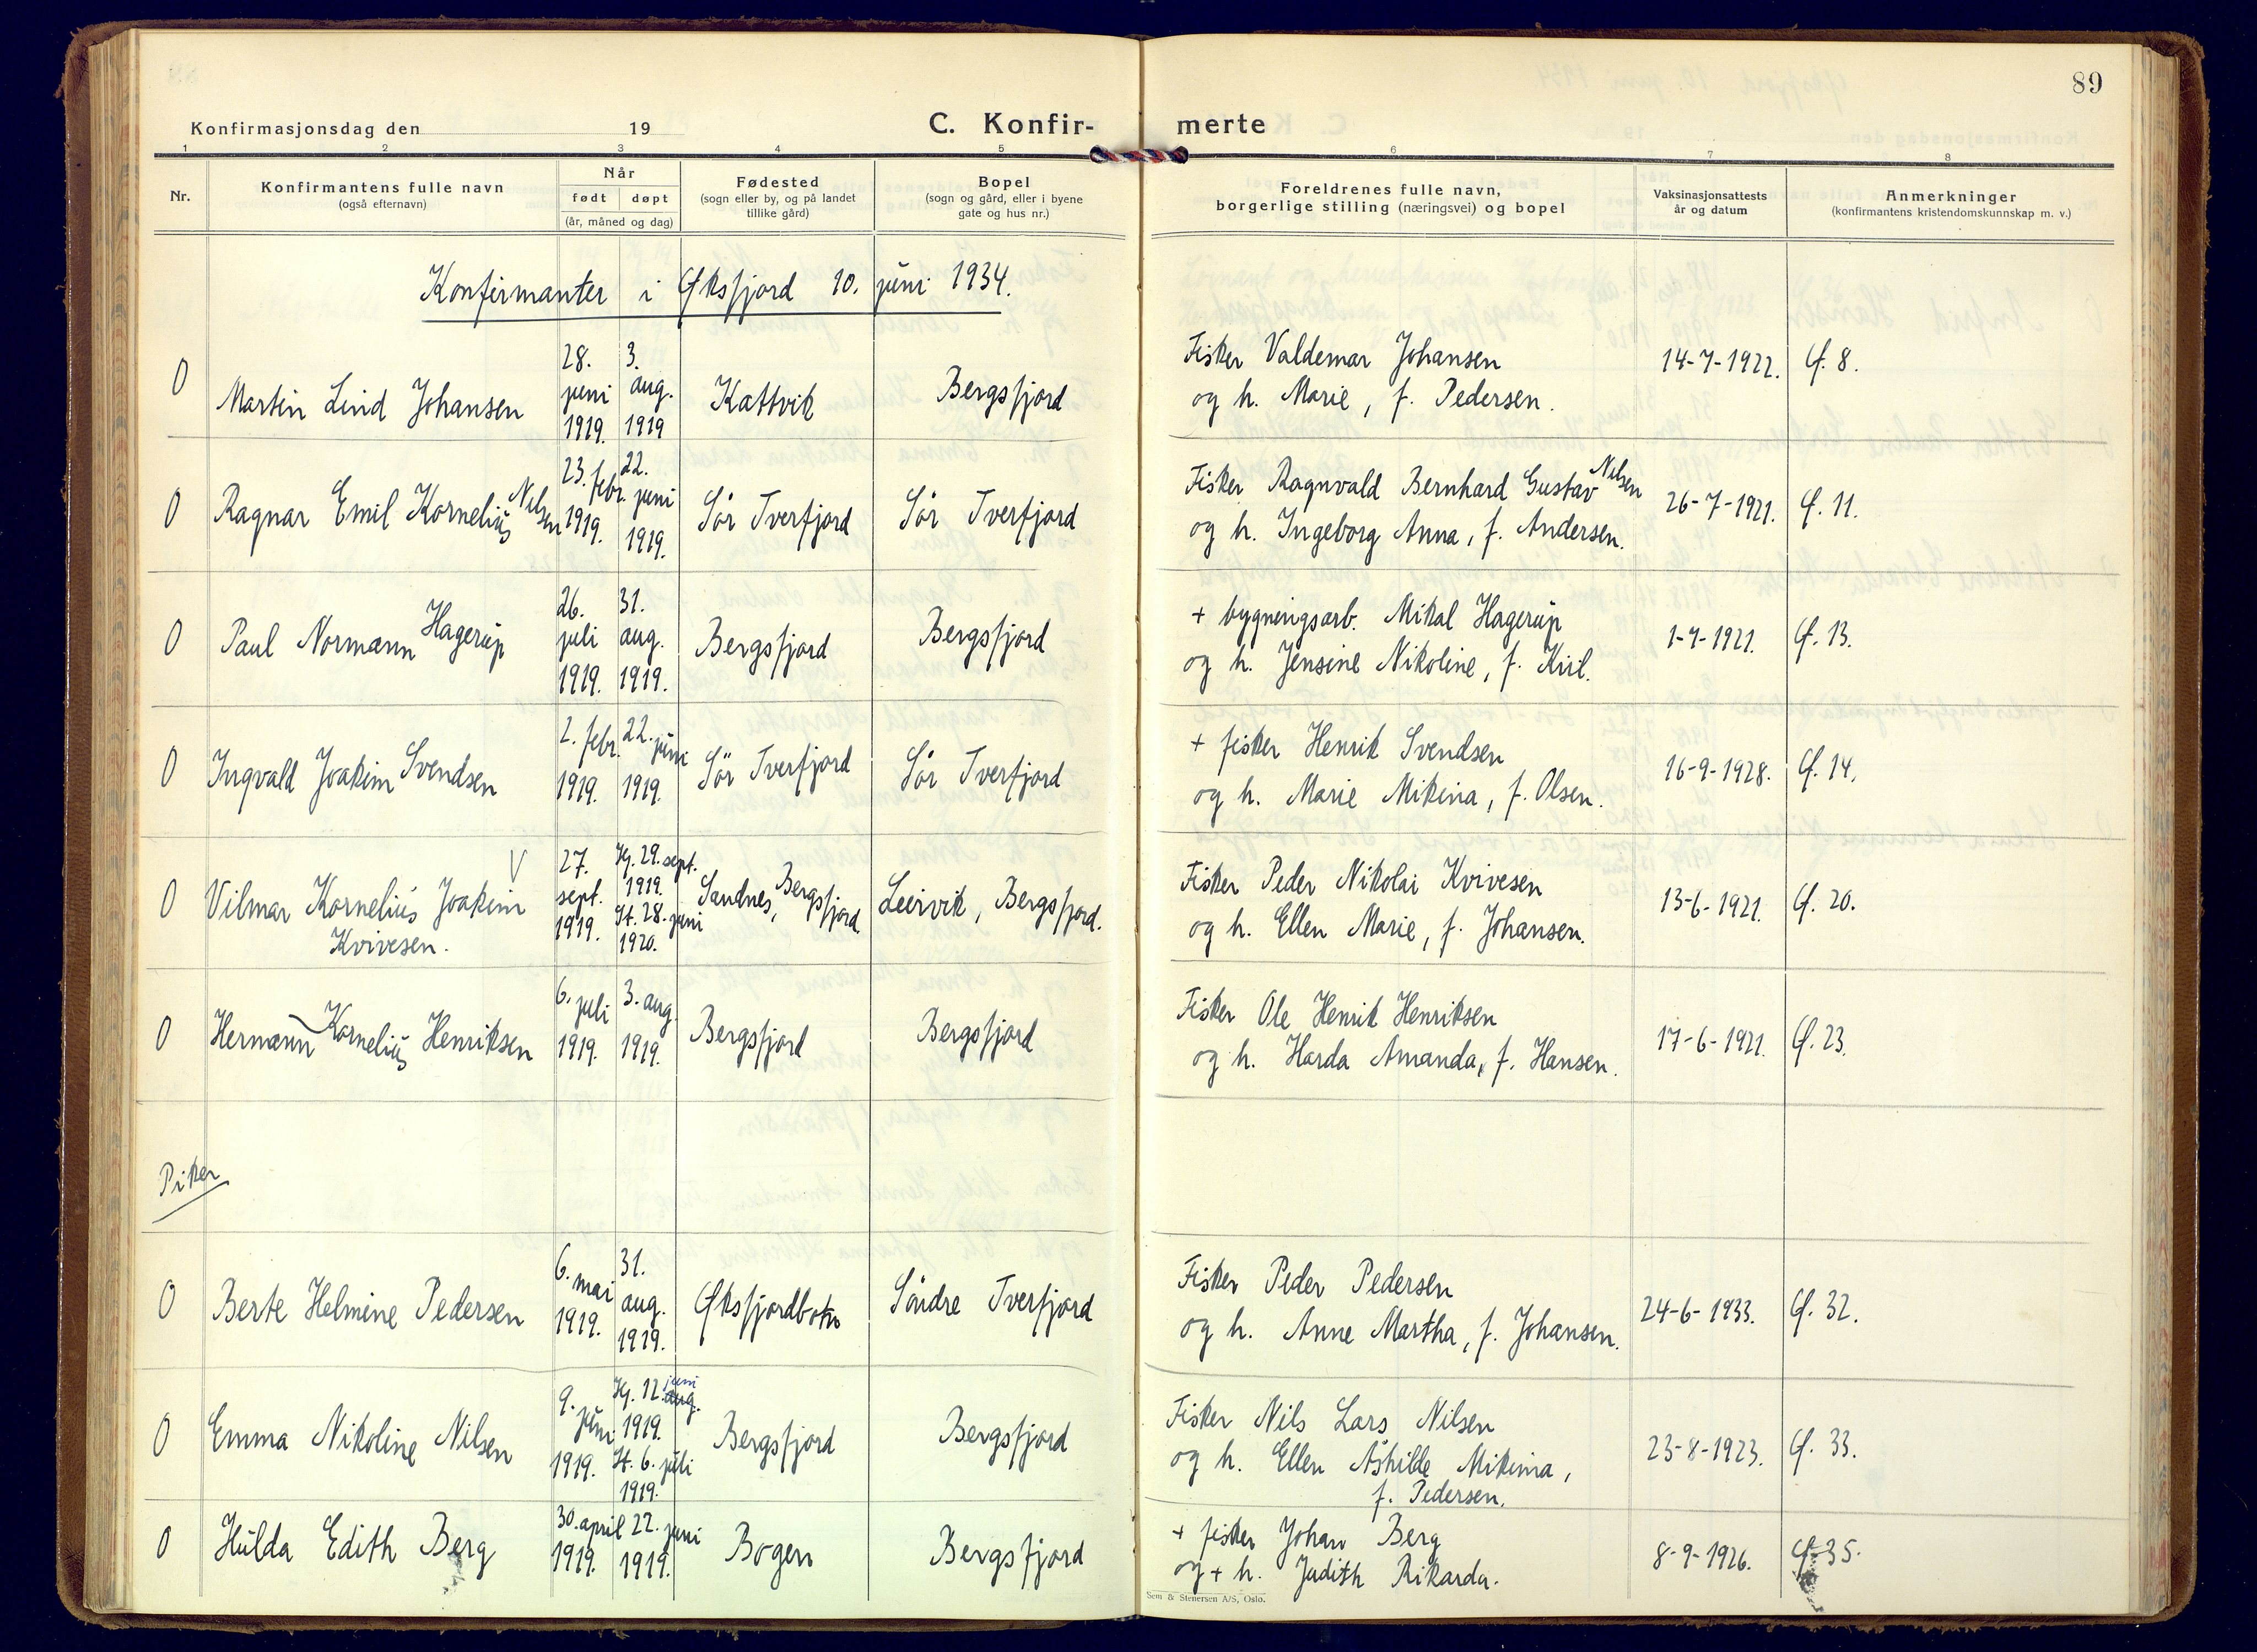 89
Konfirmasjonsdag den 19
C. Konfir-merte
1 2 3 4 5 6 7 8
Nr.
Konfirmantens fulle navn
(også efternavn)
Når
født døpt
(år, måned og dag)
Fødested
(sogn eller by, og på landet
tillike gård)
Bopel
(sogn og gård, eller i byene
gate og hus nr.)
Foreldrenes fulle navn,
borgerlige stilling (næringsvei) og bopel
Vaksinasjonsattests
år og datum
Anmerkninger
(konfirmantens kristendomskunnskap m. v.)
Konfirmanter i Øksfjord 10. juni 1934.
0 Martin Lind Johansen
28. juni 1919.
3. aug. 1919
Kattvik
Bergsfjord
Fisker Valdemar Johansen
og h. Marie, f. Pedersen.
14-7-1922.
Ø. 8.
0 Ragnar Emil Kornelius Nilsen
23. febr. 1919.
22. juni 1919.
Sør Tverfjord
Sør Tverfjord
Fisker Ragnvald Bernhard Gustav Nilsen
og h. Ingeborg Anna, f. Andersen.
26-7-1921.
Ø. 11.
0 Paul Normann Hagerup
26. juli 1919.
31. aug. 1919.
Bergsfjord
Bergsfjord
+ bygningsarb. Mikal Hagerup
og h. Jensine Nikoline, f. Kiil.
Ø. 13.
0 Ingvald Joakim Svendsen
2. febr. 1919.
22. juni 1919.
Sør Tverfjord
Sør Tverfjord
+ fisker Henrik Svendsen
og h. Marie Mikina, f. Olsen.
16-9-1928.
Ø. 14.
0 Vilmar Kornelius Joakim V
Kvivesen.
27. sept. 1919.
Hj. 29. sept. 1919.
St. 28. juni 1920.
Sandnes, Bergsfjord
Leirvik, Bergsfjord.
Fisker Peder Nikolai Kvivesen
og h. Ellen Marie, f. Johansen.
13-6-1921.
Ø. 20.
0 Hermann Kornelius Henriksen
6. juli 1919.
3. aug. 1919.
Bergsfjord
Bergsfjord
Fisker Ole Henrik Henriksen
og h. Harda Amanda, f. Hansen.
17-6-1921.
Ø. 23.
Piker
0 Berte Helmine Pedersen
6. mai 1919.
31. aug. 1919.
Øksfjordbotn
Söndre Tverfjord
Fisker Peder Pedersen
og h. Anne Martha, f. Johansen.
24-6-1933.
Ø. 32.
0 Emma Nikoline Nilsen
9. juni 1919.
Hj. 12. aug. juni 1919.
St. 6. juli 1919.
Bergsfjord
Bergsfjord
Fisker Nils Lars Nilsen
og h. Ellen Åshilde Mikina,
f. Pedersen.
23-8-1923.
Ø. 33.
0 Hulda Edith Berg
30. april 1919.
22. juni 1919.
Bogen
Bergsfjord
+ fisker Johan Berg
og + h. Judith Rikarda.
8-9-1926.
Ø. 35.
Sem & Stenersen A/S, Oslo.